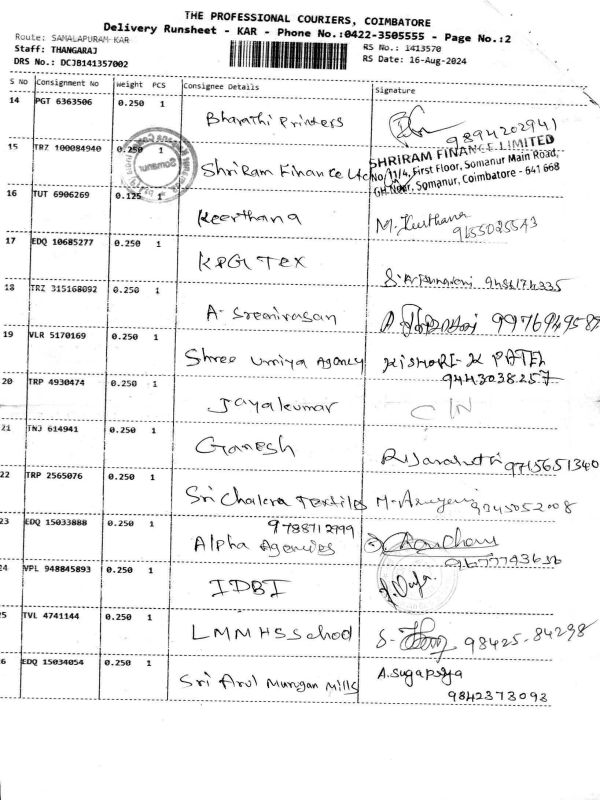 THE PROFESSIONAL COURIERS, COIMBATORE
Delivery Runsheet - KAR - Phone No.:0422-3505555 - Page No.:2
Route: SAMALAPURAM-KAR
Staff: THANGARAJ
DRS No.: DCJB141357002
RS No.: 1413570
RS Date: 16-Aug-2024
S NO Consignment No Weight PCS Consignee Details Signature
14 PGT 6363506 0.250 1
Bharathi Printers 9894202941
15 TRZ 100084940 0.250 1
ShriRam Finance Ltd
SHRIRAM FINANCE LIMITED
No/11/4, First Floor, Somanur Main Road,
Somanur, Coimbatore - 641 668
16 TUT 6906269 0.125 1
Keerthana M. Keerthana
17 EDQ 10685277 0.250 1
KPG TEX
18 TRZ 315168092 0.250 1
A. Sreenivasan
19 VLR 5170169 0.250 1
Shree Umiya Agency KISHORI-K PATEL
9443038257
20 TRP 4930474 0.250 1
Jayakumar
21 TNJ 614941 0.250 1
Ganesh 9715651340
22 TRP 2565076 0.250 1
Sri Chakra Textiles
23 EDQ 15033888 0.250 1
9788712999
Alpha Agencies
24 VPL 948845893 0.250 1
IDBI
25 TVL 4741144 0.250 1
LMMHSSchool 98425-84298
26 EDQ 15034054 0.250 1
Sri Arul Murugan Mills A.Sugapriya
9842373093